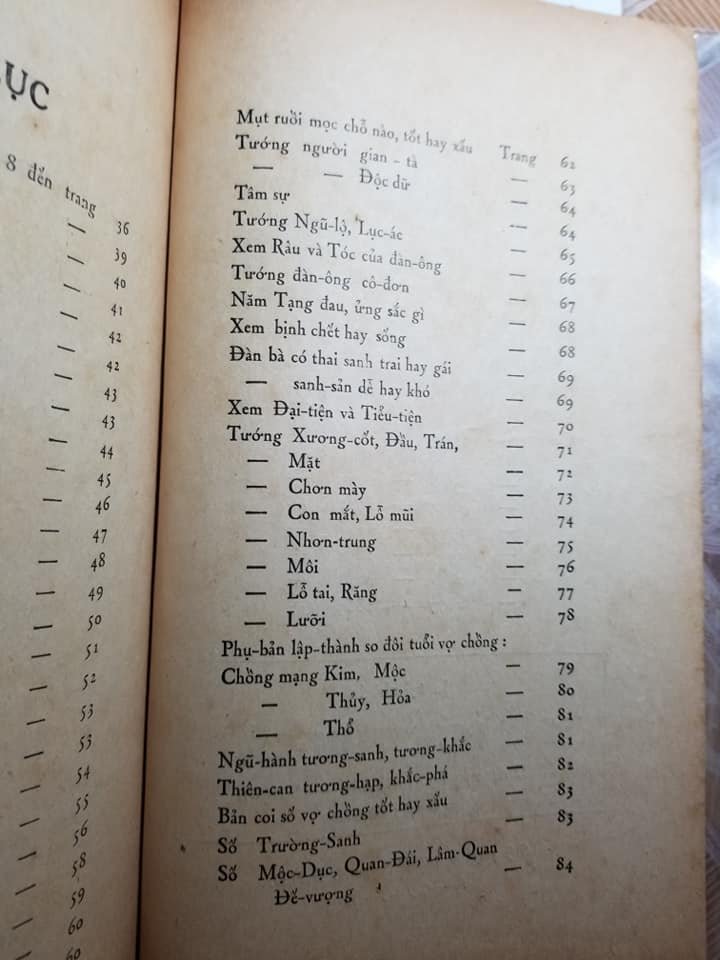 ỤC
8 đến trang 36
— 39
— 40
— 41
— 42
— 42
— 43
— 43
— 44
— 45
— 46
— 47
— 48
— 49
— 50
— 51
— 52
— 53
— 53
— 54
— 55
— 56
— 58
— 59
— 60
— 60
Mụt ruồi mọc chỗ nào, tốt hay xấu Trang 62
Tướng người gian-tà — 63
— — Độc dữ — 64
Tâm sự — 64
Tướng Ngũ-lộ, Lục-ác — 65
Xem Râu và Tóc của đàn-ông — 66
Tướng đàn-ông cô-đơn — 67
Năm Tạng đau, ửng sắc gì — 68
Xem bịnh chết hay sống — 68
Đàn bà có thai sanh trai hay gái — 69
— sanh-sản dễ hay khó — 69
Xem Đại-tiện và Tiểu-tiện — 70
Tướng Xương-cốt, Đầu, Trán, — 71
— Mặt — 72
— Chơn mày — 73
— Con mắt, Lỗ mũi — 74
— Nhơn-trung — 75
— Môi — 76
— Lỗ tai, Răng — 77
— Lưỡi — 78
Phụ-bản lập-thành so đôi tuổi vợ chồng :
Chồng mạng Kim, Mộc — 79
— Thủy, Hỏa — 80
— Thổ — 81
Ngũ-hành tương-sanh, tương-khắc — 81
Thiên-can tương-hạp, khắc-phá — 82
Bản coi số vợ chồng tốt hay xấu — 83
Số Trường-Sanh — 83
Số Mộc-Dục, Quan-Đái, Lâm-Quan — 84
Đế-vượng